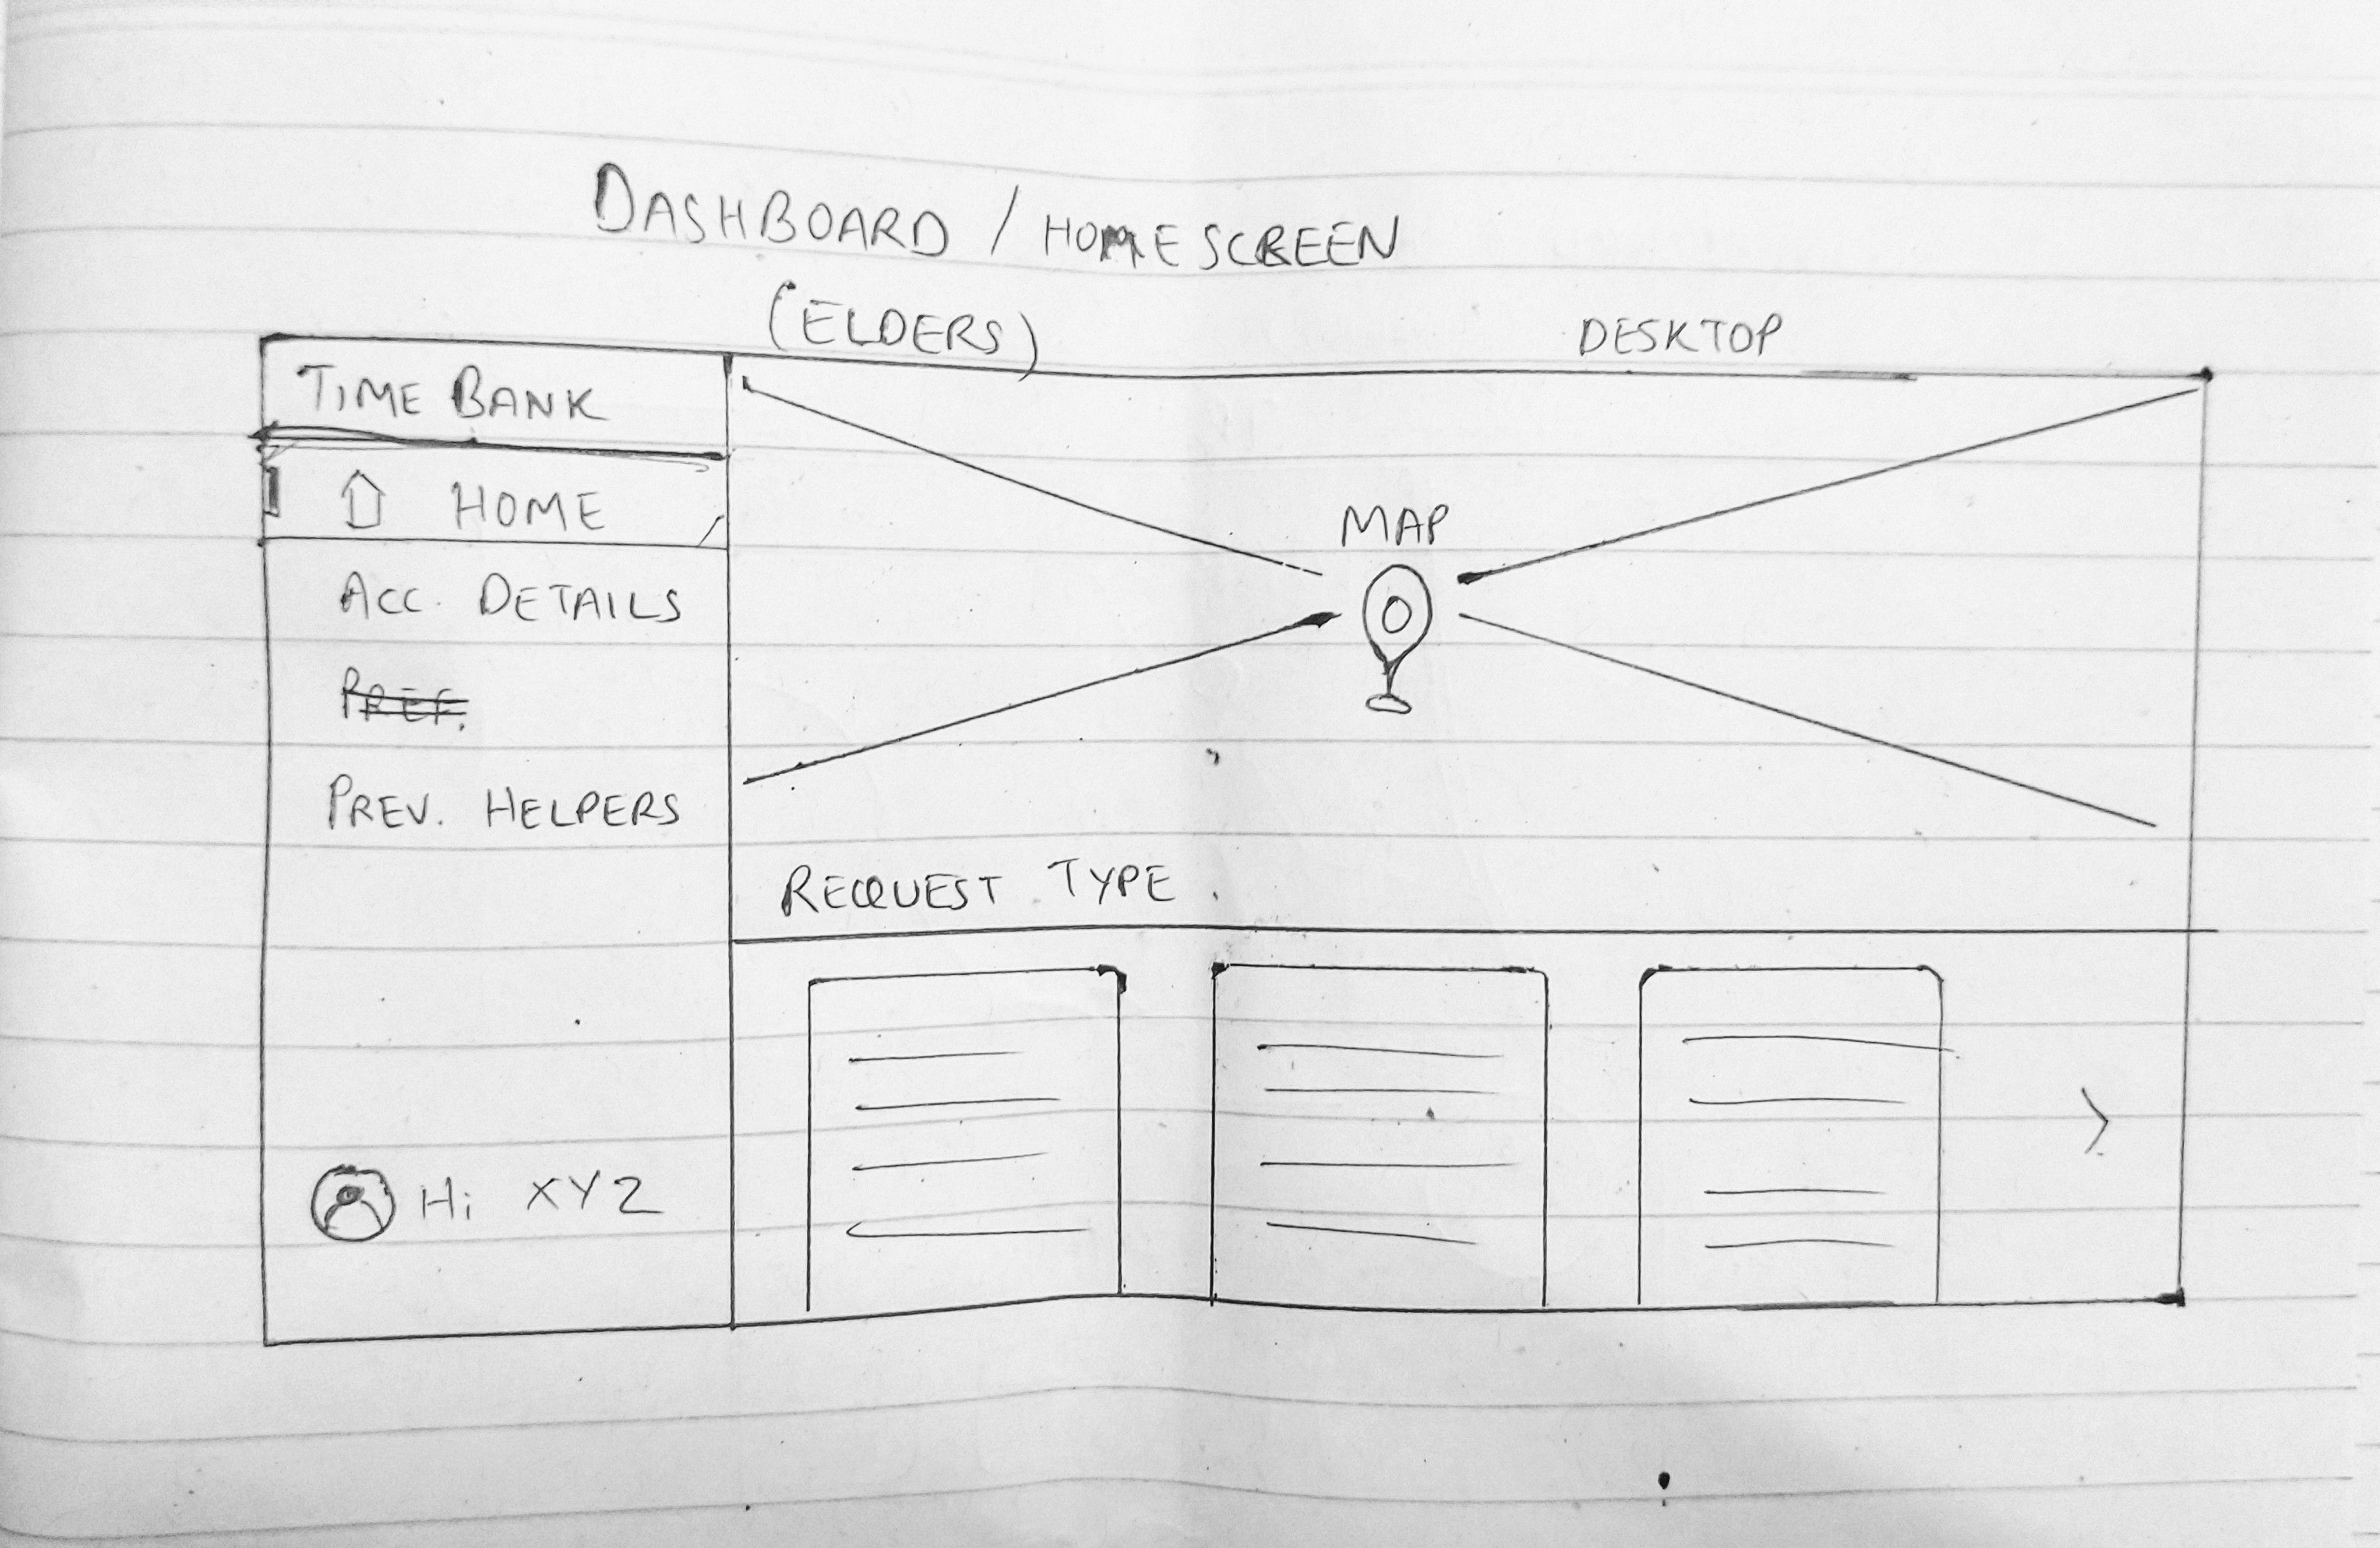 DASHBOARD / HOMESCREEN
(ELDERS)
DESKTOP
TIME BANK
HOME
ACC. DETAILS
PREF.
PREV. HELPERS
Hi XYZ
MAP
REQUEST TYPE